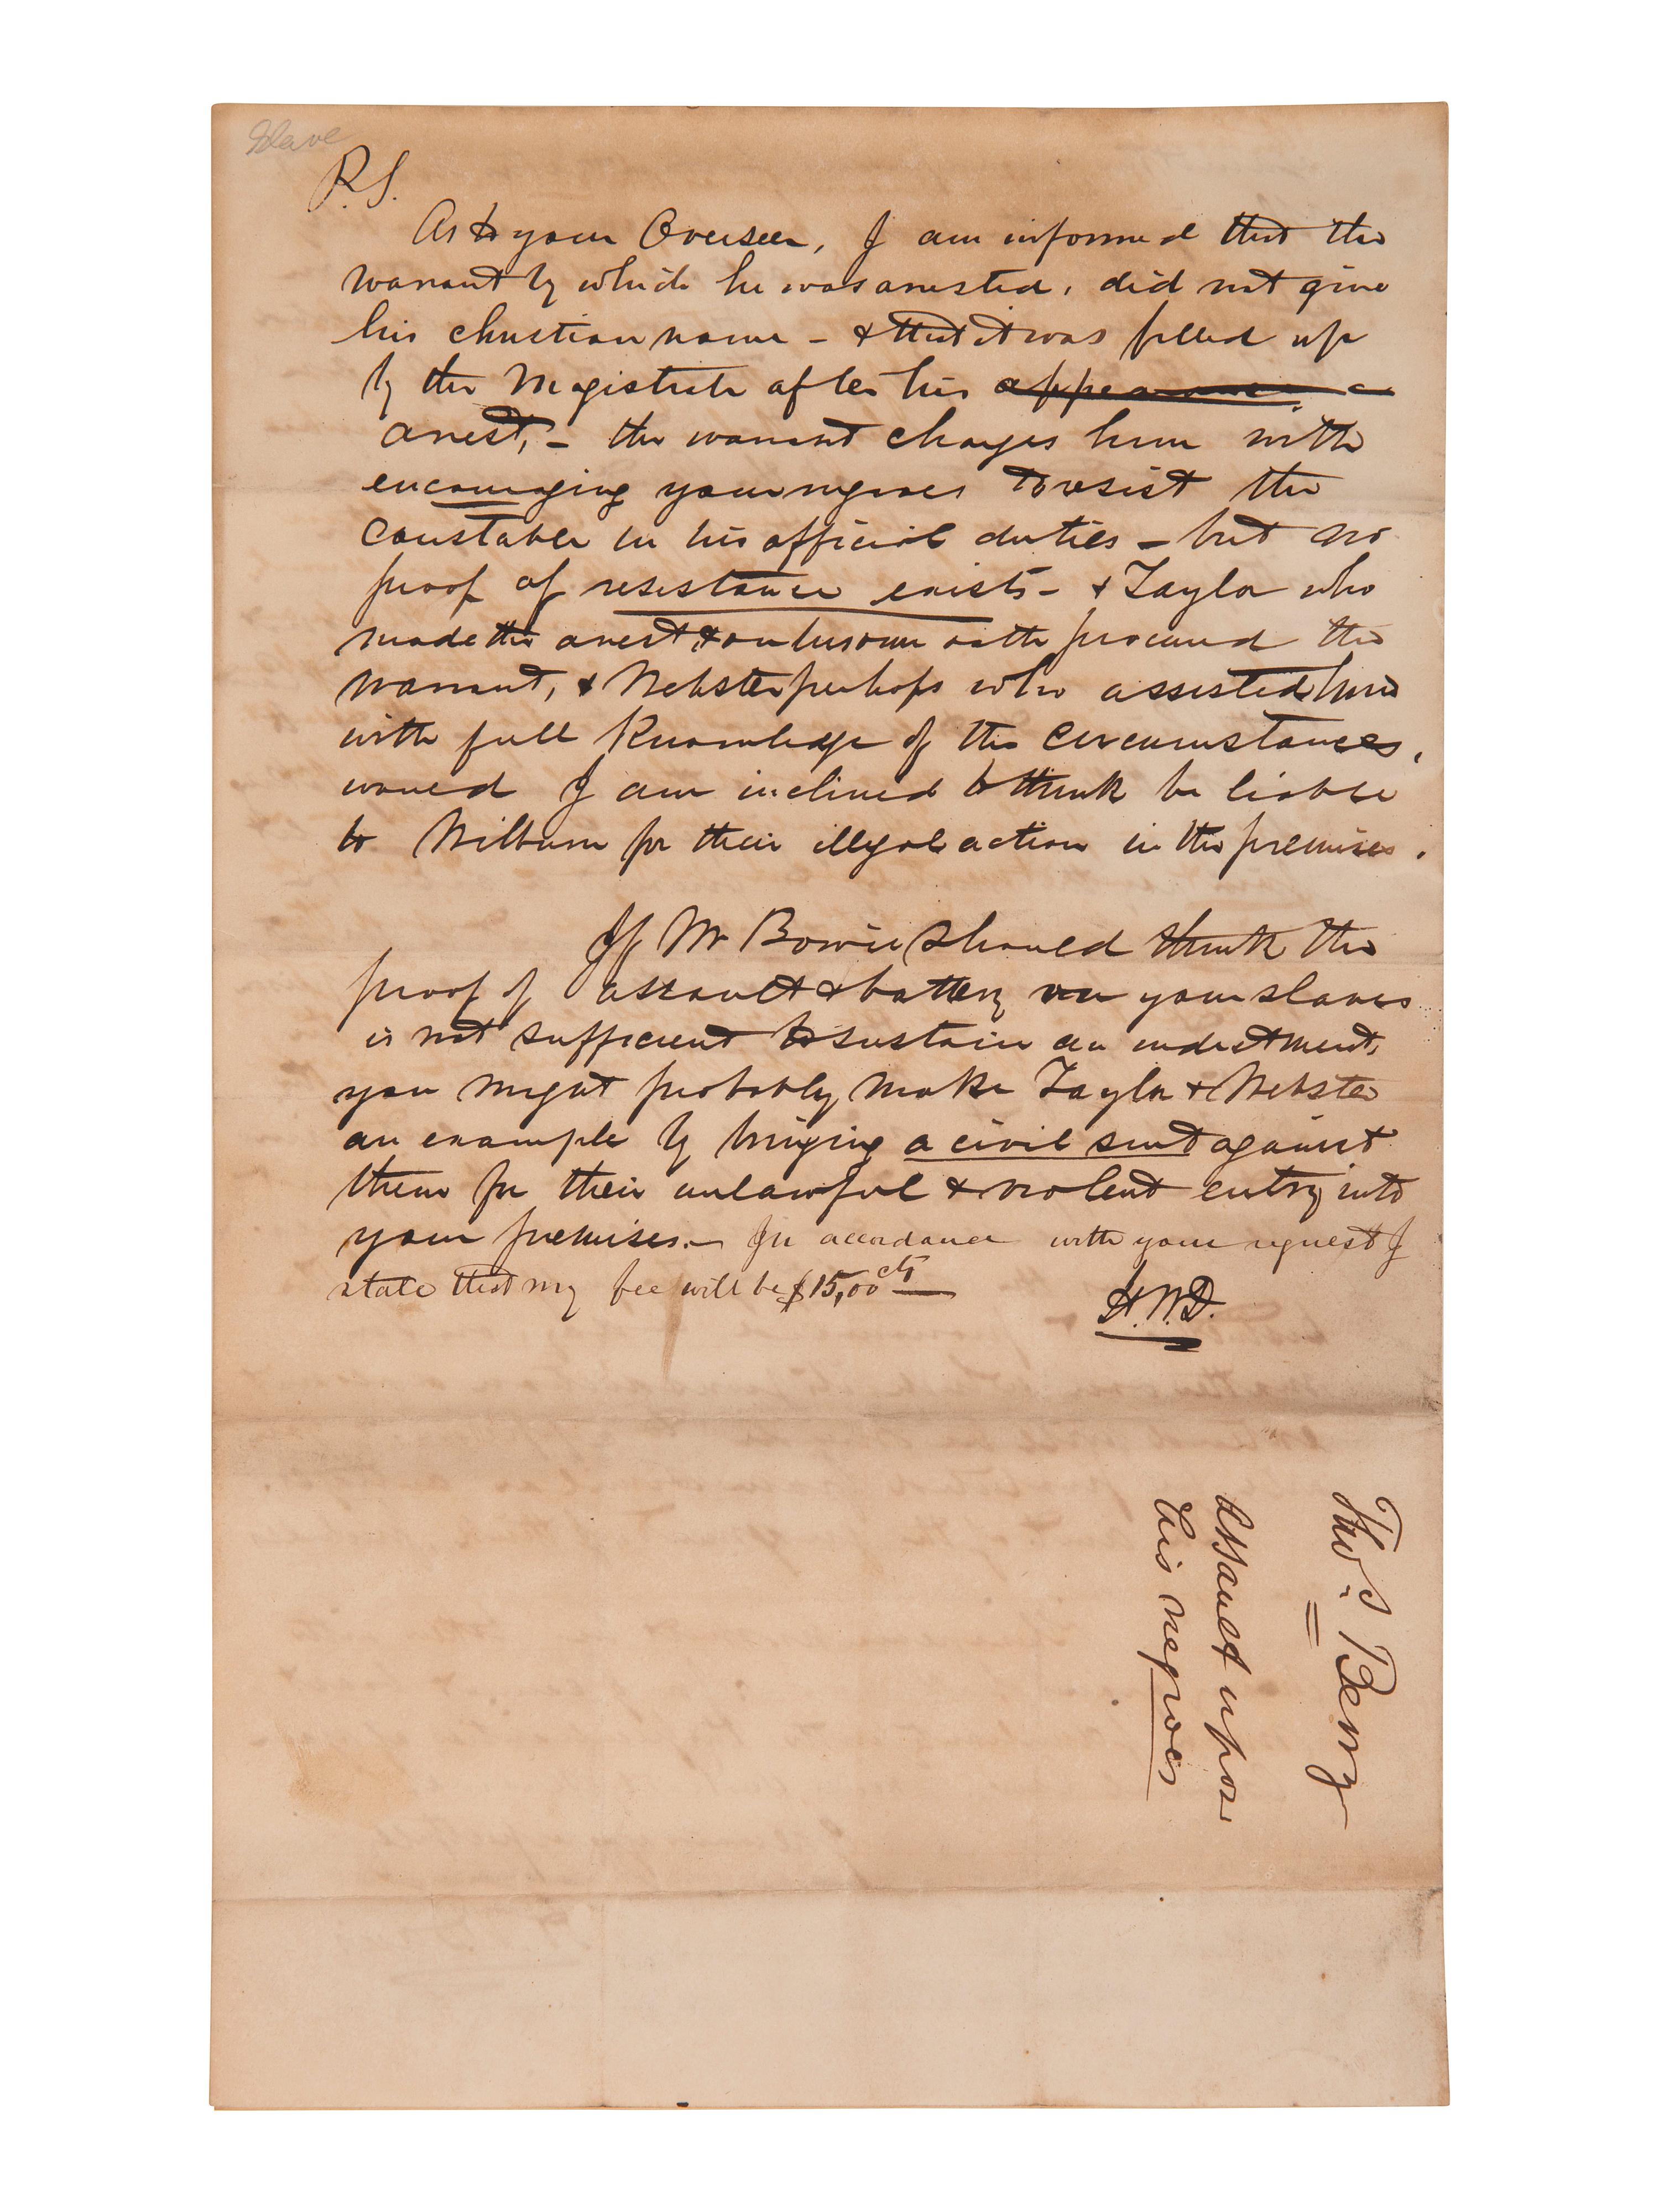 Slave
P.S.
As to your Overseer, I am informed that the
warrant by which he was arrested, did not give
his christian name - & that it was filled up
by the Magistrate after his appearance
arrest, - the warrant charges him with
encouraging your negroes to resist the
Constable in his official duties - but no
proof of resistance exists - & Taylor who
made the arrest & on his own oath procured the
warrant, & Webster perhaps who assisted him
with full Knowledge of the circumstances,
would I am inclined to think be liable
to Wilburn for their illegal action in the premises.
If Mr Bowie should think the
proof of assault & battery on your slaves
is not sufficient to sustain an indictment,
you might probably make Taylor & Webster
an example by bringing a civil suit against
them for their unlawful & violent entry into
your premises. - In accordance with your request I
state that my fee will be $15,00 cts
H.W.D.
Thos. Berry
Assault upon
his negroes